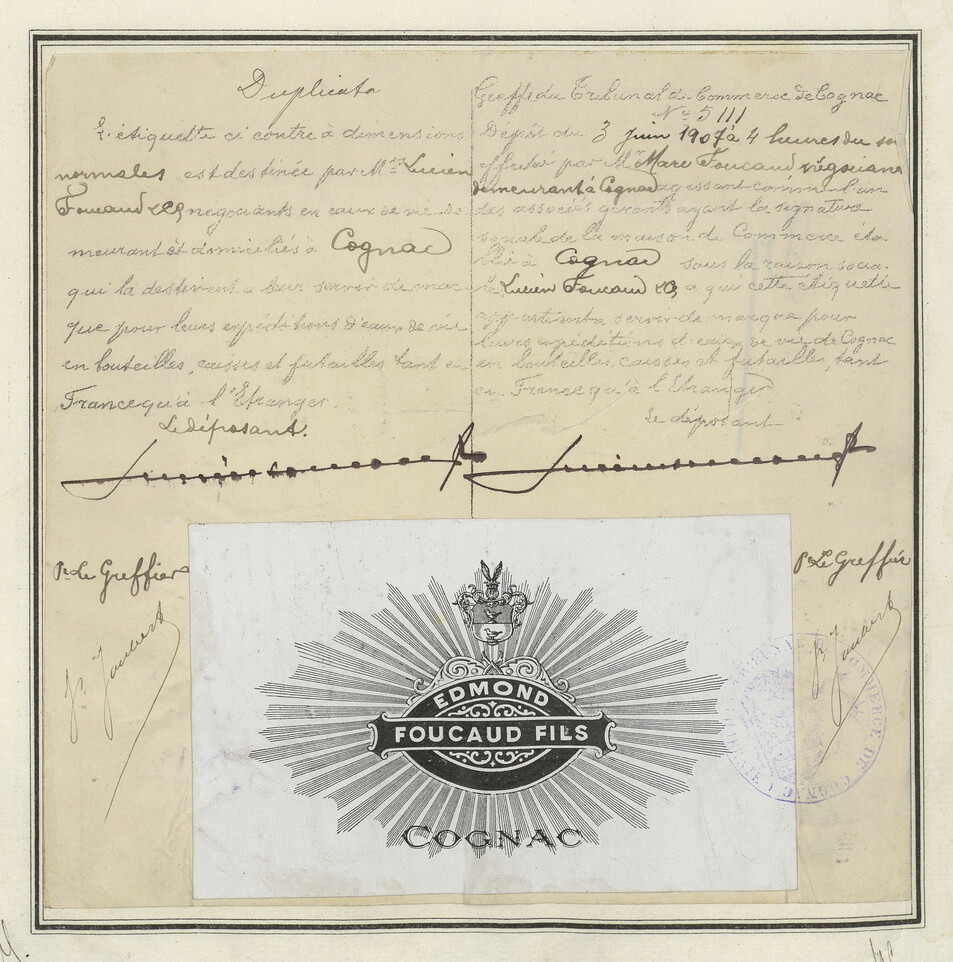 Duplicata
L'étiquette ci contre à dimensions
normales est destinée par Mrs Lucien
Foucaud & Co négociants en eaux de vie de
meurant et domiciliés à Cognac
qui la destinent à leur servir de mar
que pour leurs expéditions d'eaux de vie
en bouteilles, caisses et futailles tant en
France qu'à l'Etranger.
Le déposant.
Greffe du Tribunal de Commerce de Cognac
No 5111
Dépôt du 3 juin 1907 à 4 heures du soir
effectué par Mr Marc Foucaud négociant
demeurant à Cognac agissant comme l'un
des associés gérants ayant la signature
sociale de la maison de Commerce éta
blie à Cognac sous la raison socia
le Lucien Foucaud & Co, à qui cette étiquette
appartient servir de marque pour
leurs expéditions d'eaux de vie de Cognac
en bouteilles, caisses et futailles, tant
en France qu'à l'Etranger
Le déposant
Pr Le Greffier
Joubert
Pr Le Greffier
Joubert
EDMOND
FOUCAUD FILS
COGNAC
TRIBUNAL DE COMMERCE DE COGNAC